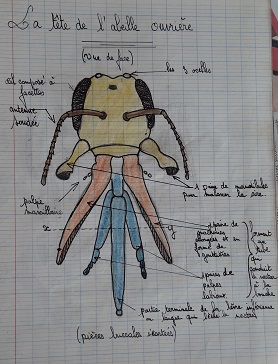 La tête de l'abeille ouvrière
(vue de face)
les 3 ocelles
œil composé à
facettes
antenne
coudée
1 paire de mandibules
pour malaxer la cire
palpe
maxillaire
1 paire de
mâchoires
allongées et en
forme de
gouttières
formant un
tube
qui
conduit
le nectar
à la
bouche
x
y
1 paire de
palpes
labiaux
partie terminale de la lèvre inférieure
ou langue qui lèche le nectar
(pièces buccales écartées)